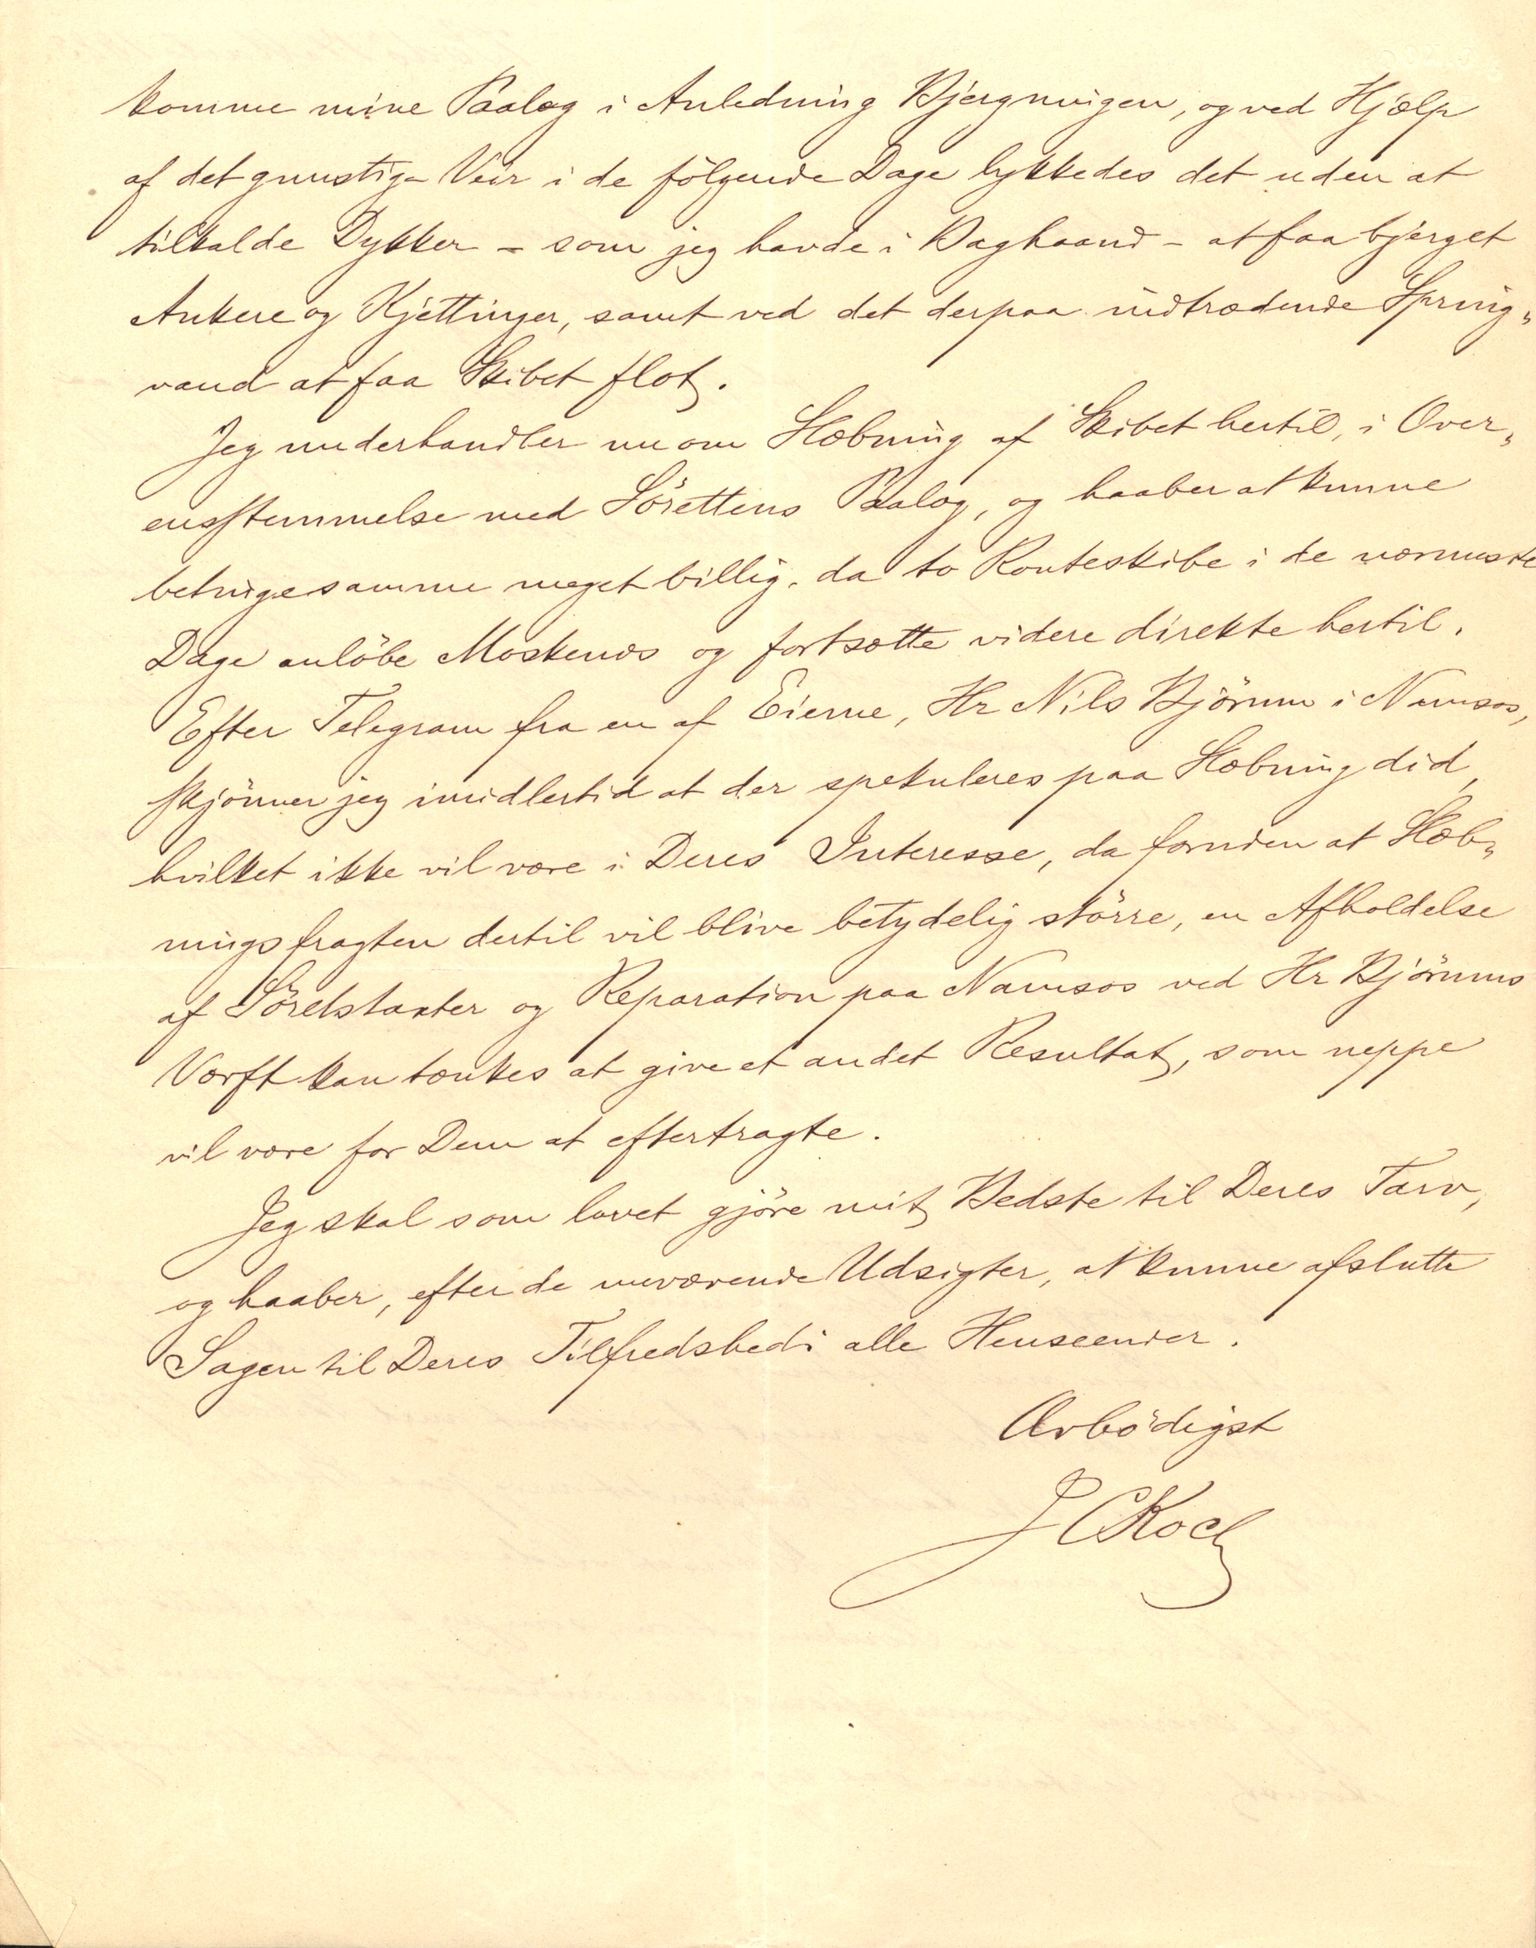 komme mine Paalæg i Anledning Bjergningen, og ved Hjælp
af det gunstige Veir i de følgende Dage lykkedes det uden at
tilkalde Dykker – som jeg havde i Baghaand – at faa bjerget
Ankere og Kjettinger, samt ved det derpaa indtrædende Spring„
vand at faa Skibet flot.
Jeg underhandler nu om Slæbning af Skibet hertil, i Over„
ensstemmelse med Sørettens Paalæg, og haaber at kunne
betinge samme meget billig, da to Routeskibe i de nærmeste
Dage anløbe Moskenæs og fortsætte videre direkte hertil.
Efter Telegram fra en af Eierne, Hr Nils Bjørum i Namsos,
skjønner jeg imidlertid at der spekuleres paa Slæbning did,
hvilket ikke vil være i Deres Interesse, da foruden at Slæb„
ningsfragten dertil vil blive betydelig større, en Afholdelse
af Søretstaxter og Reparation paa Namsos ved Hr Bjørums
Værft kan tænkes at give et andet Resultat, som neppe
vil være for Dem at eftertragte.
Jeg skal som lovet gjøre mit Bedste til Deres Tarv,
og haaber, efter de nuværende Udsigter, at kunne afslutte
Sagen til Deres Tilfredshed i alle Henseender.
Ærbødigst
J C Koch